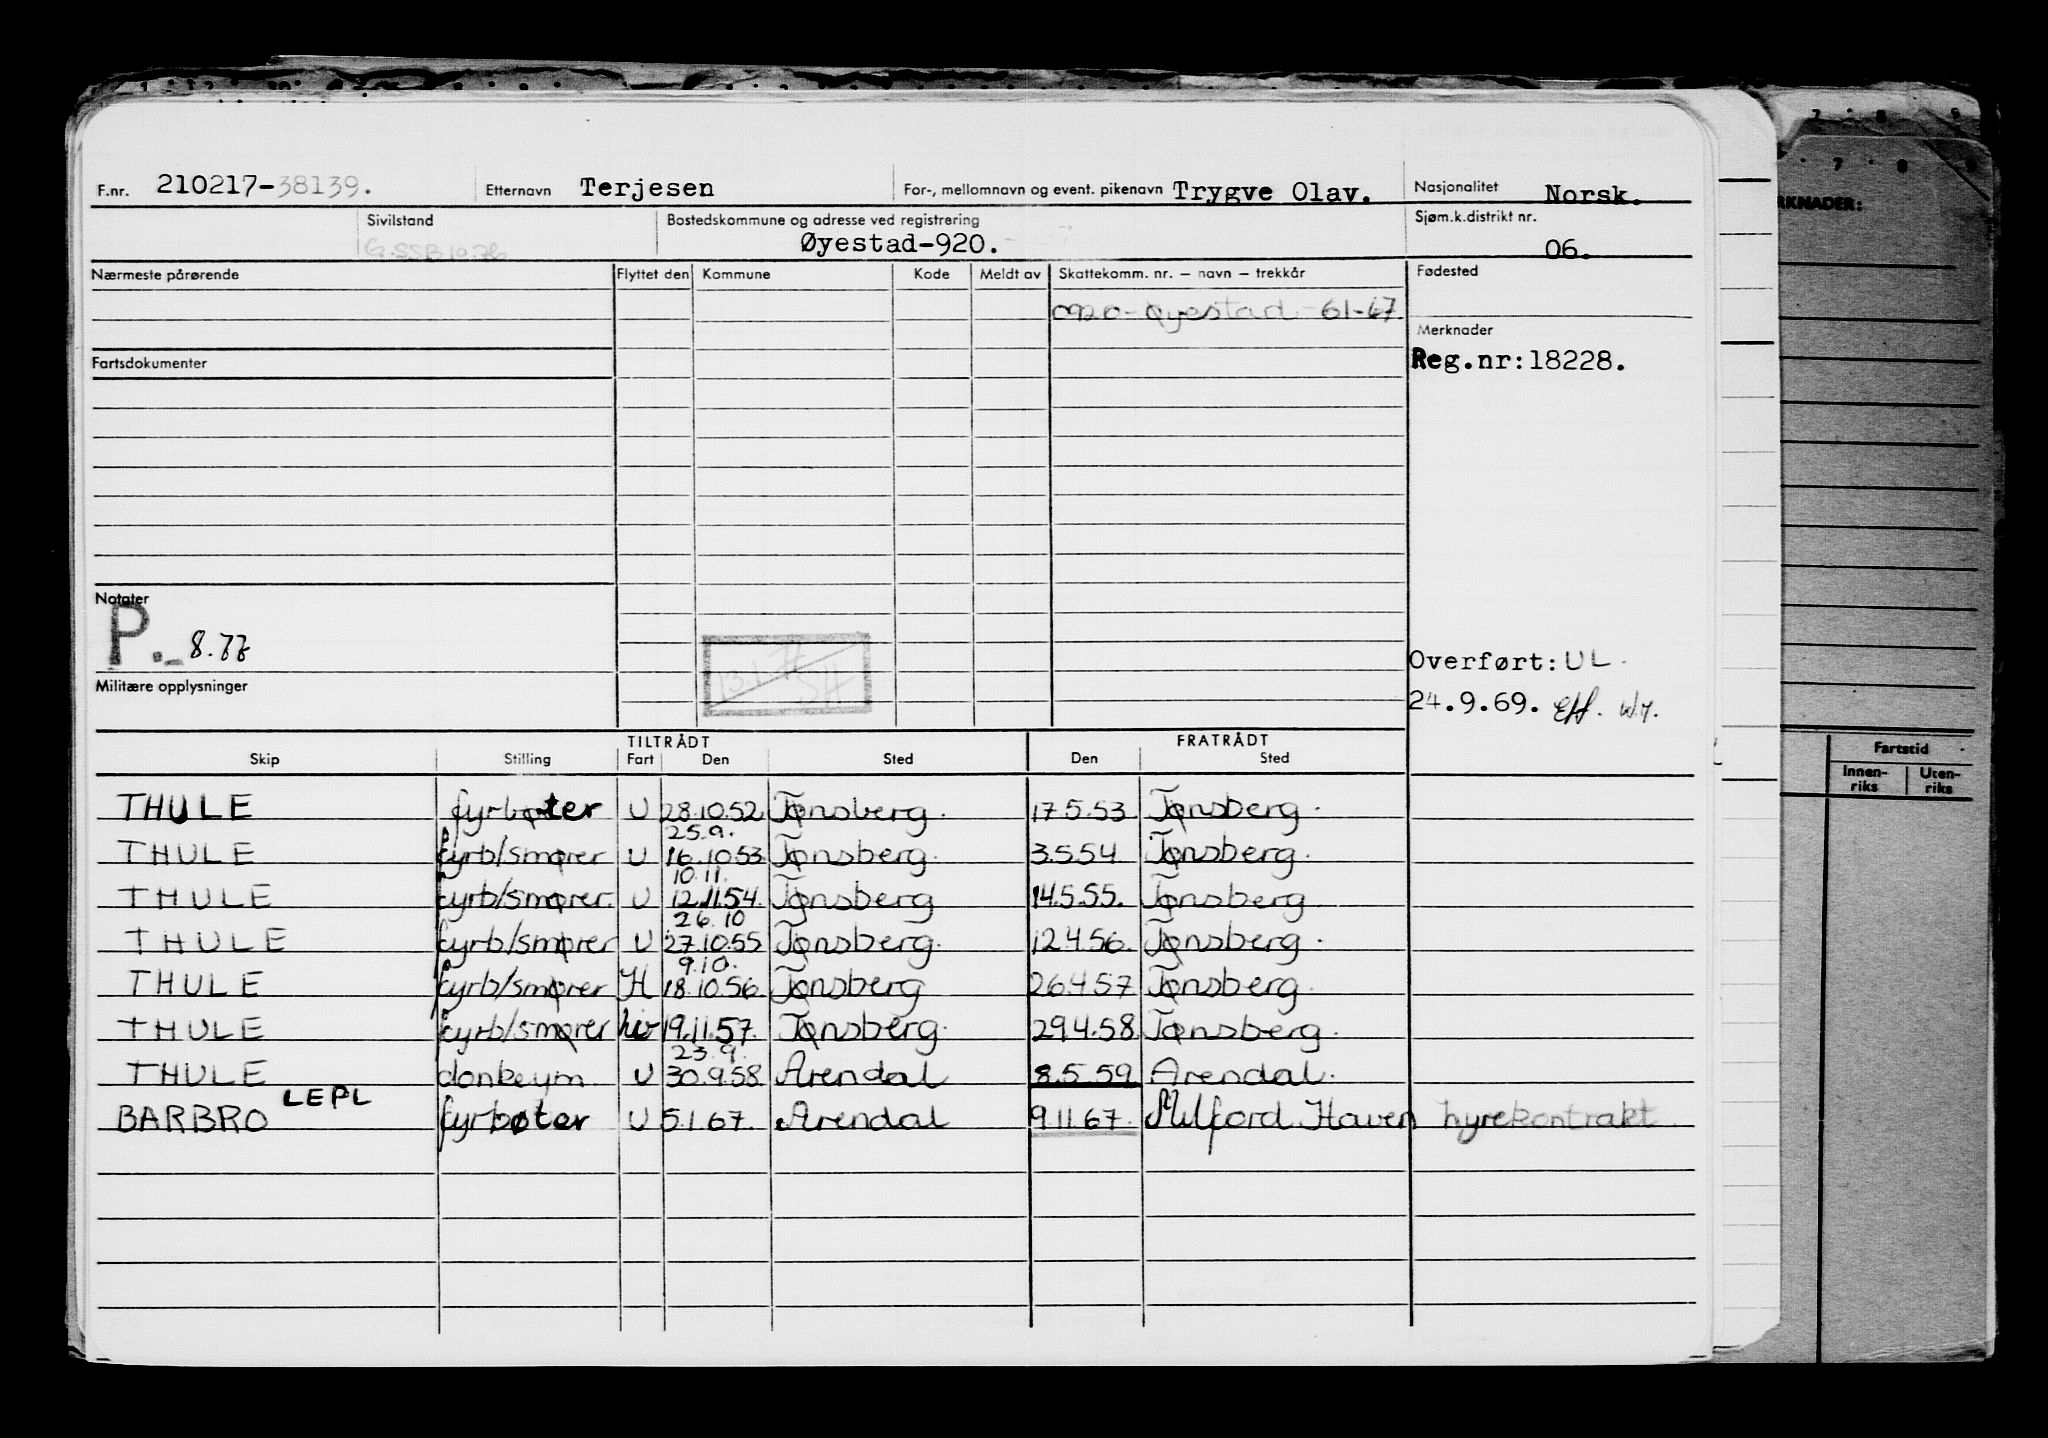 F.nr. 210217-38139. Etternavn Terjesen For-, mellomnavn og event. pikenavn Trygve Olav. Nasjonalitet Norsk.
Sivilstand G.SSB10.76 Bostedskommune og adresse ved registrering Øyestad-920. Sjøm.k.distrikt nr. 06.
Nærmeste pårørende Flyttet den Kommune Kode Meldt av Skattekomm. nr. – navn – trekkår Fødested
0920-Øyestad-61-67
Merknader
Fartsdokumenter Reg.nr:18228.
Notater
P. 8.77
Overført: UL.
Militære opplysninger
24.9.69. Eff.
TILTRÅDT FRATRÅDT
Skip Stilling Fart Den Sted Den Sted
THULE fyrbøter U 28.10.52 Tønsberg. 17.5.53 Tønsberg.
25.9.
THULE fyrb/smører U 16.10.53 Tønsberg. 3.5.54 Tønsberg.
10.11.
THULE fyrb/smører. U 12.11.54. Tønsberg 14.5.55. Tønsberg
26.10
THULE fyrb/smører U 27.10.55 Tønsberg. 12.4.56. Tønsberg.
9.10.
THULE fyrb/smører H 18.10.56. Tønsberg 26.4.57 Tønsberg.
THULE fyrb/smører hv 19.11.57. Tønsberg. 29.4.58 Tønsberg.
23.9.
THULE donkeym U 30.9.58 Arendal 8.5.59 Arendal.
LEPL
BARBRO fyrbøter U 5.1.67. Arendal 9.11.67. Milford Haven hyrekontrakt
7 8 9
7 8 9
RKNADER:
Fartstid
Innen-riks Uten-riks